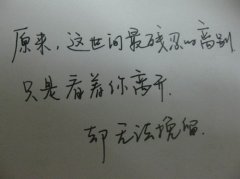 原来，这世间最残忍的离别
只是看着你离开.
却无法挽留.